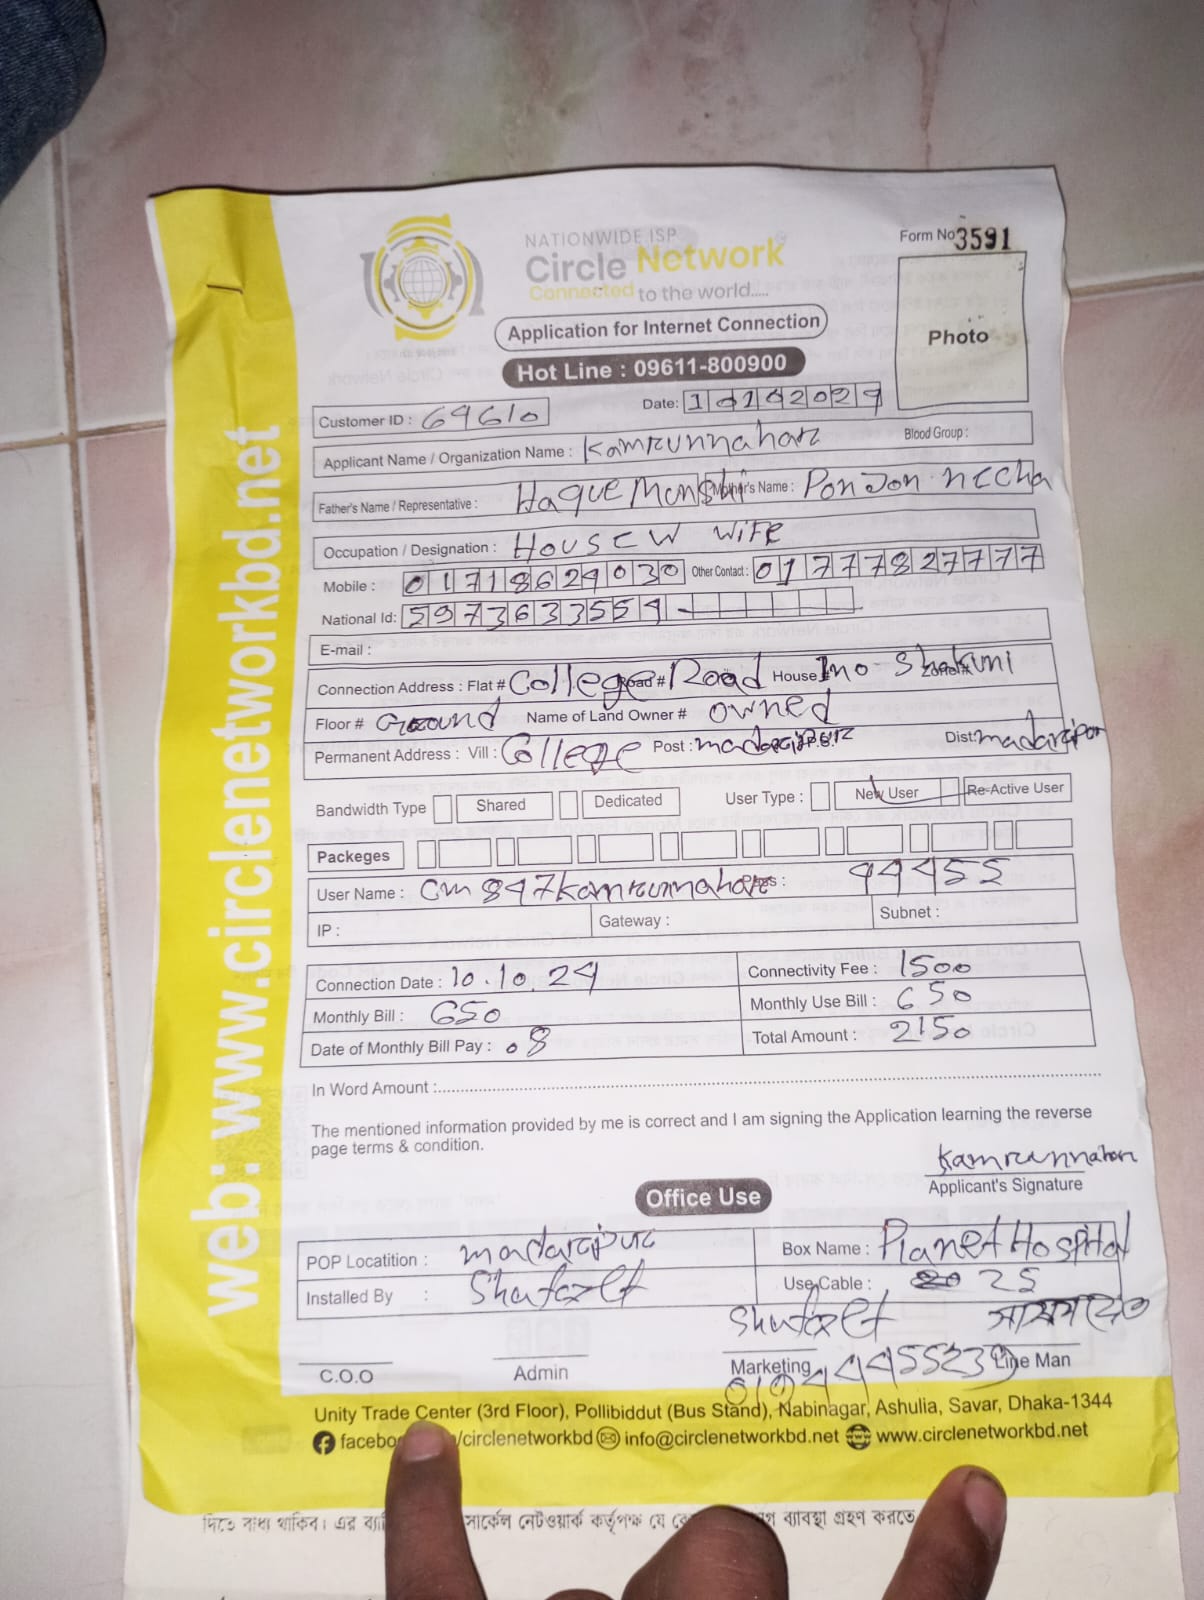 NATIONWIDE ISP
Circle Network
Connected to the world.....
Form No 3591
Application for Internet Connection
Photo
Hot Line : 09611-800900
Customer ID : 69610
Date: 10102024
Applicant Name / Organization Name : Kamrunnahar
Blood Group :
Father's Name / Representative : Haque Munshi Mother's Name : Ponjon necha
Occupation / Designation : House W Wife
Mobile : 01718624030 Other Contact : 01777827777
National Id: 5973633554
E-mail :
Connection Address : Flat # College Road # Road House # no Shakuni
Floor # Ground Name of Land Owner # owned
Permanent Address : Vill : College Post : madaripur P.S. Dist: madaripur
Bandwidth Type Shared Dedicated User Type : New User Re-Active User
Packeges
User Name : cm847kamrunnahar Pass : 44455
IP : Gateway : Subnet :
Connection Date : 10.10.24 Connectivity Fee : 1500
Monthly Bill : 650 Monthly Use Bill : 650
Date of Monthly Bill Pay : 08 Total Amount : 2150
In Word Amount :
The mentioned information provided by me is correct and I am signing the Application learning the reverse
page terms & condition.
Kamrunnahar
Applicant's Signature
Office Use
POP Locatition : madaripur Box Name : Planet Hospital
Installed By : Use Cable : 25
C.O.O Admin Marketing Line Man
Unity Trade Center (3rd Floor), Pollibiddut (Bus Stand), Nabinagar, Ashulia, Savar, Dhaka-1344
/circlenetworkbd info@circlenetworkbd.net www.circlenetworkbd.net
web: www.circlenetworkbd.net
দিতে বাধ্য থাকিব। এর সার্কেল নেটওয়ার্ক কর্তৃপক্ষ যে ব্যাবস্থা গ্রহণ করতে